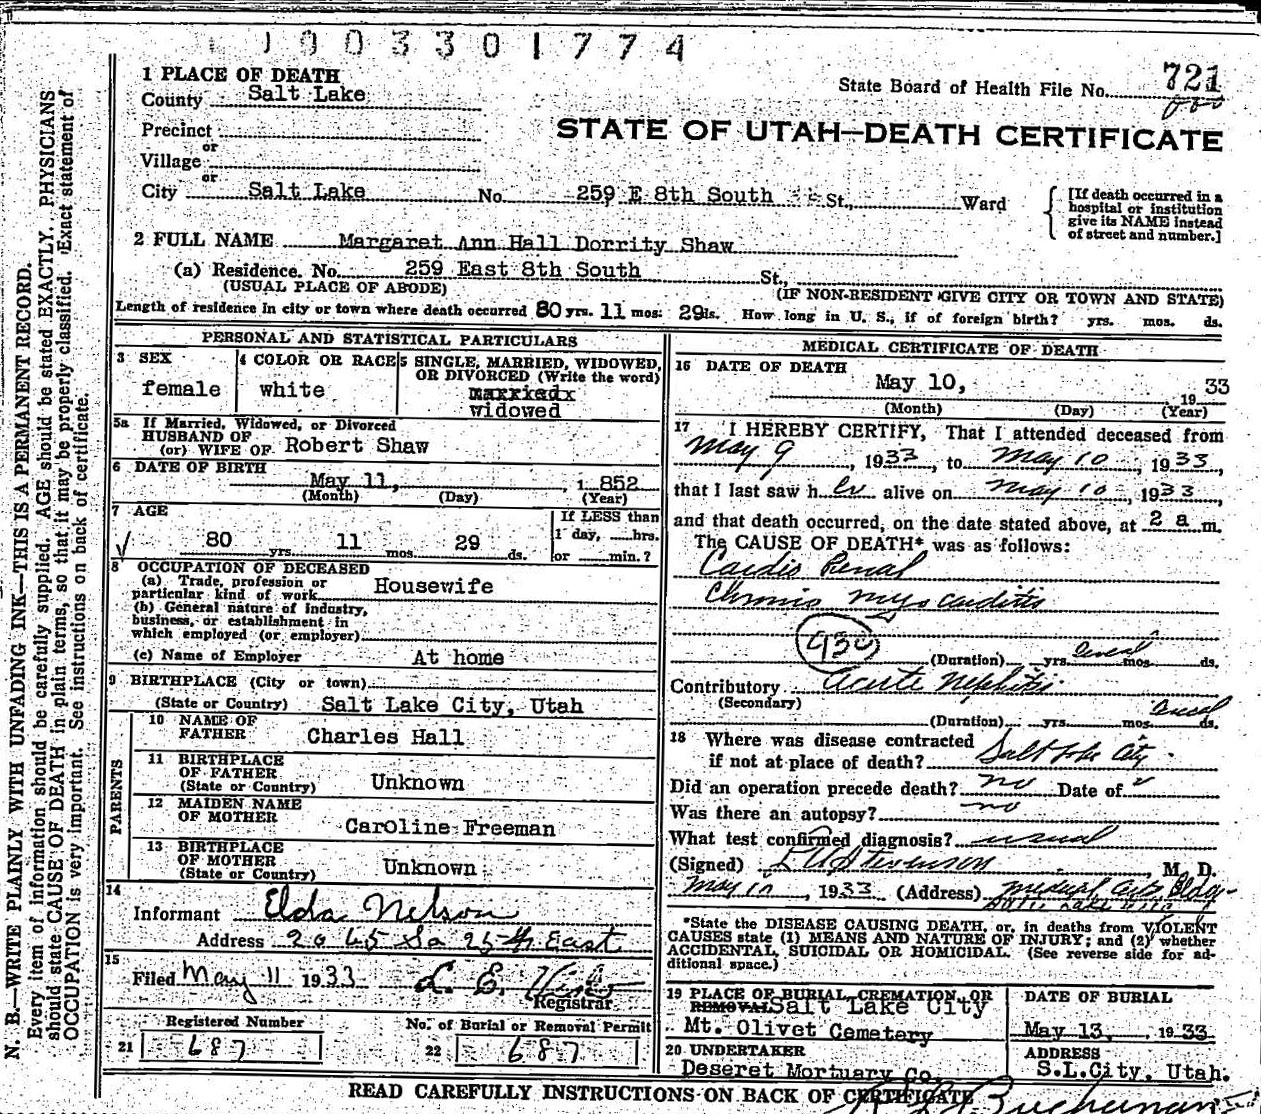 1903301774
1 PLACE OF DEATH
State Board of Health File No. 721
County Salt Lake
STATE OF UTAH—DEATH CERTIFICATE
Precinct
or
Village
or
City Salt Lake No. 259 E 8th South St., Ward
[If death occurred in a
hospital or institution
give its NAME instead
of street and number.]
2 FULL NAME Margaret Ann Hall Dorrity Shaw
(a) Residence. No. 259 East 8th South St.,
(USUAL PLACE OF ABODE) (IF NON-RESIDENT GIVE CITY OR TOWN AND STATE)
Length of residence in city or town where death occurred 80 yrs. 11 mos. 29 ds. How long in U. S., if of foreign birth? yrs. mos. ds.
PERSONAL AND STATISTICAL PARTICULARS
3 SEX
female
4 COLOR OR RACE
white
5 SINGLE, MARRIED, WIDOWED,
OR DIVORCED (Write the word)
widowed
5a If Married, Widowed, or Divorced
HUSBAND OF
(or) WIFE OF Robert Shaw
6 DATE OF BIRTH
May 11, 1852
(Month) (Day) (Year)
7 AGE
80 yrs. 11 mos. 29 ds.
If LESS than
1 day, hrs.
or min.?
8 OCCUPATION OF DECEASED
(a) Trade, profession or
particular kind of work Housewife
(b) General nature of industry,
business, or establishment in
which employed (or employer)
(c) Name of Employer At home
9 BIRTHPLACE (City or town)
(State or Country) Salt Lake City, Utah
PARENTS
10 NAME OF
FATHER Charles Hall
11 BIRTHPLACE
OF FATHER
(State or Country) Unknown
12 MAIDEN NAME
OF MOTHER Caroline Freeman
13 BIRTHPLACE
OF MOTHER
(State or Country) Unknown
14
Informant Elda Nelson
Address 2045 So 25th East
15
Filed May 11 1933 L. E.
Registrar
Registered Number
21 687
No. of Burial or Removal Permit
22 687
MEDICAL CERTIFICATE OF DEATH
16 DATE OF DEATH
May 10, 1933
(Month) (Day) (Year)
17 I HEREBY CERTIFY, That I attended deceased from
May 9, 1933, to May 10, 1933,
that I last saw her alive on May 10, 1933,
and that death occurred, on the date stated above, at 2 a m.
The CAUSE OF DEATH* was as follows:
Cardio Renal
Chronic myocarditis
930
(Duration) yrs. several mos. ds.
Contributory acute nephritis
(Secondary)
(Duration) yrs. mos. several ds.
18 Where was disease contracted
if not at place of death? Salt Lake City
Did an operation precede death? no Date of
Was there an autopsy? no
What test confirmed diagnosis? usual
(Signed) Stevenson, M. D.
May 10, 1933 (Address) Medical Arts Bldg
Salt Lake City
*State the DISEASE CAUSING DEATH, or, in deaths from VIOLENT
CAUSES state (1) MEANS AND NATURE OF INJURY; and (2) whether
ACCIDENTAL, SUICIDAL OR HOMICIDAL. (See reverse side for ad-
ditional space.)
19 PLACE OF BURIAL, CREMATION, OR
REMOVAL Salt Lake City
Mt. Olivet Cemetery
DATE OF BURIAL
May 13, 1933
20 UNDERTAKER
Deseret Mortuary Co.
ADDRESS
S.L.City, Utah.
READ CAREFULLY INSTRUCTIONS ON BACK OF CERTIFICATE
Buchanan
N. B.—WRITE PLAINLY WITH UNFADING INK—THIS IS A PERMANENT RECORD.
Every item of information should be carefully supplied. AGE should be stated EXACTLY. PHYSICIANS
should state CAUSE OF DEATH in plain terms, so that it may be properly classified. Exact statement of
OCCUPATION is very important. See instructions on back of certificate.